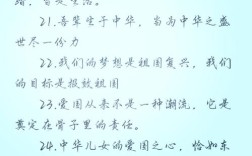 21.吾辈生于中华,当为中华之盛
世尽一份力
22.我们的梦想是祖国复兴,我们
的目标是报效祖国
23.爱国从来不是一种潮流,它是
奠定在骨子里的责任。
24.中华儿女的爱国之心,恰如东